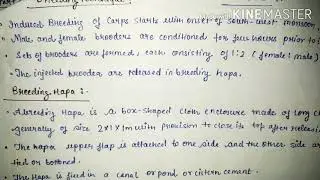 Made with
KINEMASTER
Induced Breeding of Carps starts with onset of south-west monsoon
Male and female brooders are conditioned for few hours prior to
Sets of brooders are formed, each consisting of 1:2 (female: male)
The injected brooders are released in breeding hapa.
Breeding Hapa :-
A breeding Hapa is a box-shaped cloth enclosure made of long cl
generally of size 2x1x1m with provision to close its top after releasi
The hapa upper flap is attached to one side and the other side ar
tied or bottoned.
The Hapa is fixed in a canal or pond or cistern cement.